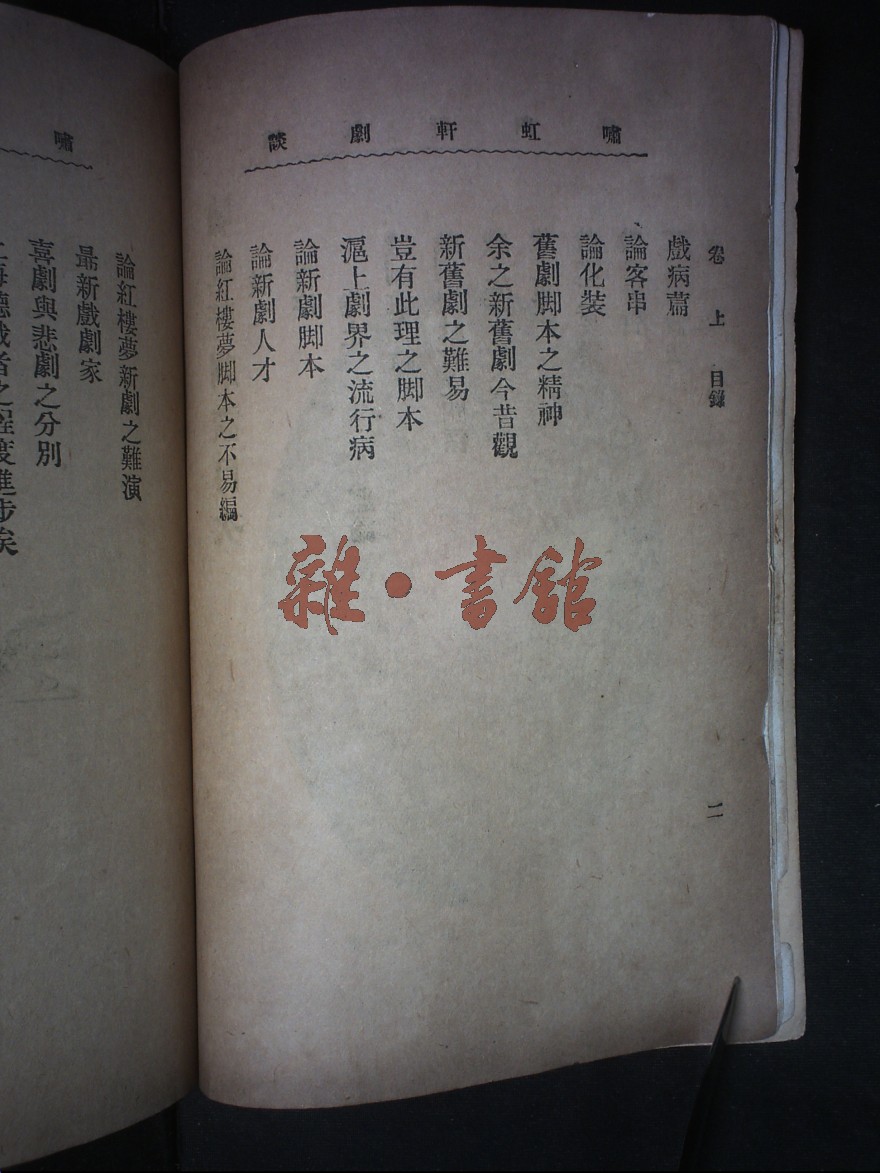 嘯虹軒劇談
卷上 目錄
二
戲病薷
論客串
論化裝
舊劇脚本之精神
余之新舊劇今昔觀
新舊劇之難易
豈有此理之脚本
滬上劇界之流行病
論新劇脚本
論新劇人才
論紅樓夢脚本之不易編
雜•書館
嘯
論紅樓夢新劇之難演
最新戲劇家
喜劇與悲劇之分別
海聽戲者之程度進步矣